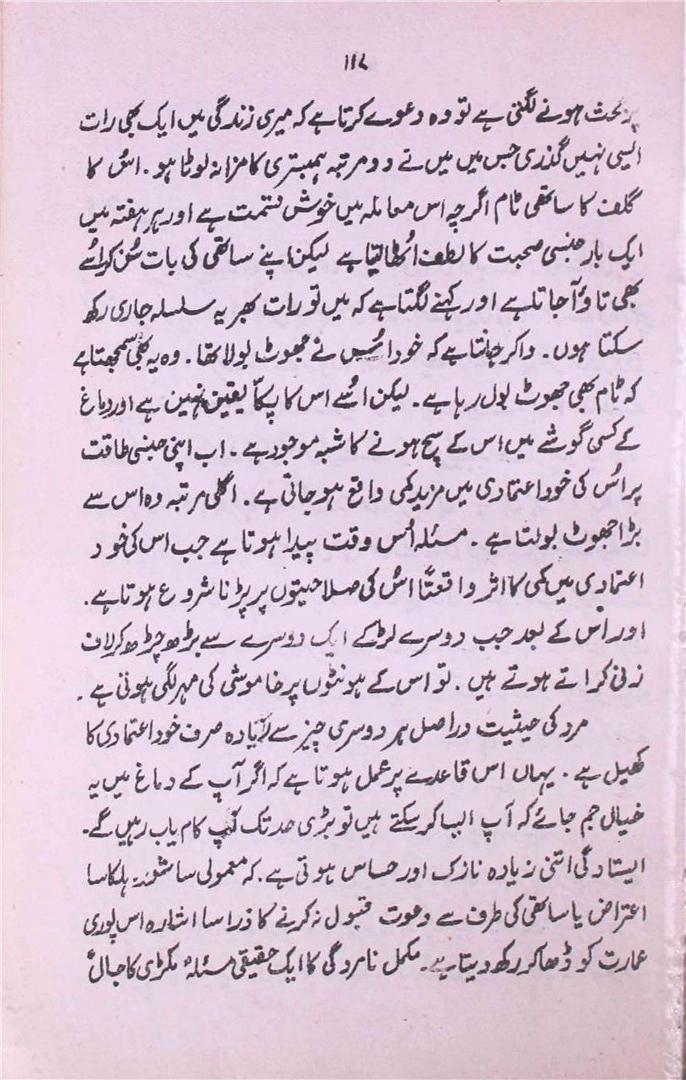 ۱۱۷
پر بحث ہونے لگتی ہے تو وہ دعوے کرتا ہے کہ میری زندگی میں ایک بھی رات
ایسی نہیں گذری جس میں میں نے دو مرتبہ ہمبستری کا مزا نہ لوٹا ہو۔ اس کا
گلف کا ساتھی ٹام اگرچہ اس معاملہ میں خوش قسمت ہے اور ہر ہفتہ میں
ایک بار جنسی صحبت کا لطف اُٹھا لیتا ہے لیکن اپنے ساتھی کی بات سُن کر اسے
بھی تاؤ آجاتا ہے اور کہنے لگتا ہے کہ میں تو رات بھر یہ سلسلہ جاری رکھ
سکتا ہوں۔ ڈاکر جانتا ہے کہ خود اُس نے جھوٹ بولا تھا۔ وہ یہ بھی سمجھتا ہے
کہ ٹام بھی جھوٹ بول رہا ہے۔ لیکن اُسے اس کا پکّا یقین نہیں ہے اور دماغ
کے کسی گوشے میں اس کے سچ ہونے کا شبہ موجود ہے۔ اب اپنی جنسی طاقت
پر اُس کی خود اعتمادی میں مزید کمی واقع ہو جاتی ہے۔ اگلی مرتبہ وہ اس سے
بڑا جھوٹ بولتا ہے۔ مسئلہ اُس وقت پیدا ہوتا ہے جب اس کی خود
اعتمادی میں کمی کا اثر واقعتاً اُس کی صلاحیتوں پر پڑنا شروع ہوتا ہے۔
اور اُس کے بعد جب دوسرے لڑکے ایک دوسرے سے بڑھ چڑھ کر لاف
زنی کر اتے ہوتے ہیں۔ تو اس کے ہونٹوں پر خاموشی کی مہر لگی ہوتی ہے۔
مرد کی حیثیت دراصل ہر دوسری چیز سے زیادہ صرف خود اعتمادی کا
کھیل ہے۔ یہاں اس قاعدے پر عمل ہوتا ہے کہ اگر آپ کے دماغ میں یہ
خیال جم جائے کہ آپ ایسا کر سکتے ہیں تو بڑی حد تک آپ کام یاب رہیں گے۔
ایستادگی اتنی زیادہ نازک اور حساس ہوتی ہے۔ کہ معمولی سا شور، ہلکا سا
اعتراض یا ساتھی کی طرف سے دعوت قبول نہ کرنے کا ذرا سا اشارہ اس پوری
عمارت کو ڈھا کر رکھ دیتا ہے۔ مکمل نامردگی کا ایک حقیقی مسئلہ ' مکڑی کا جال '